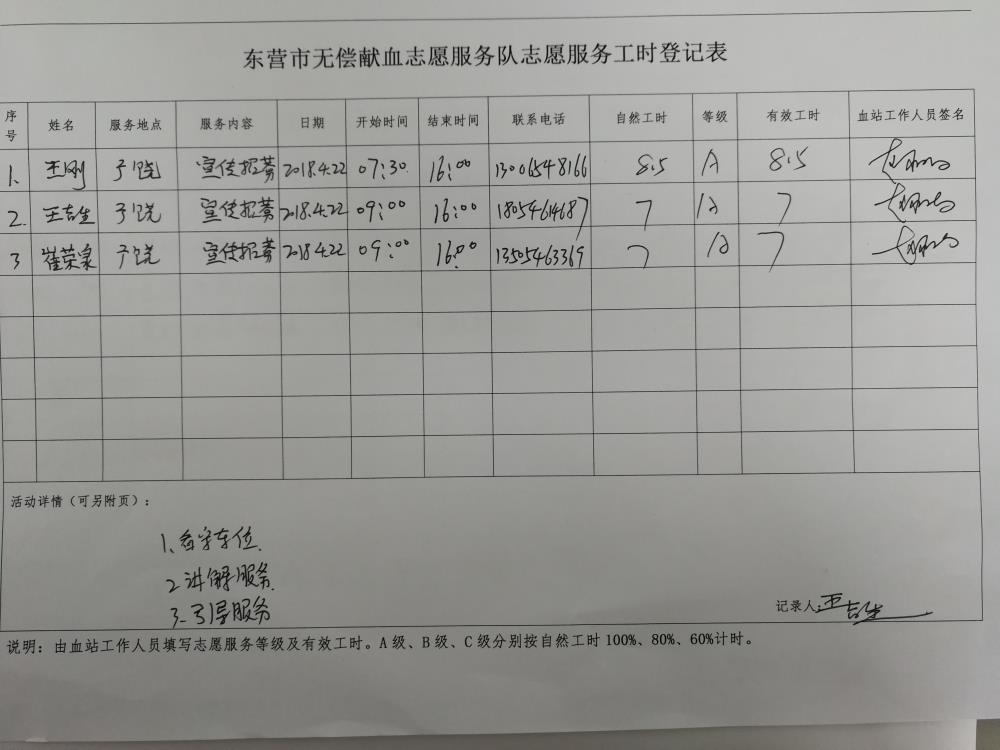 东营市无偿献血志愿服务队志愿服务工时登记表
序号 姓名 服务地点 服务内容 日期 开始时间 结束时间 联系电话 自然工时 等级 有效工时 血站工作人员签名
1. 王刚 广饶 宣传招募 2018.4.22 07:30 16:00 13006548166 8.5 A 8.5
2. 王吉生 广饶 宣传招募 2018.4.22 09:00 16:00 18054614687 7 A 7
3 崔荣泉 广饶 宣传招募 2018.4.22 09:00 16:00 13505463369 7 A 7
活动详情（可另附页）：
1、看守车位
2 讲解服务
3、引导服务
记录人：王吉生
说明：由血站工作人员填写志愿服务等级及有效工时。A 级、B 级、C 级分别按自然工时 100%、80%、60%计时。